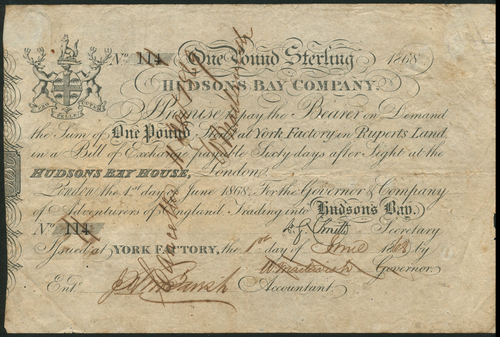 No. 114 One Pound Sterling 1868
HUDSONS BAY COMPANY.
I Promise to pay the Bearer on Demand
the Sum of One Pound Ster at York Factory in Ruperts Land
in a Bill of Exchange payable Sixty days after Sight at the
HUDSONS BAY HOUSE, London
London the 1st day of June 1868. For the Governor & Company
of Adventurers of England Trading into Hudson's Bay.
No. 114 Secretary
Issued at YORK FACTORY, the 1st day of June by
Governor.
Entd. Accountant.